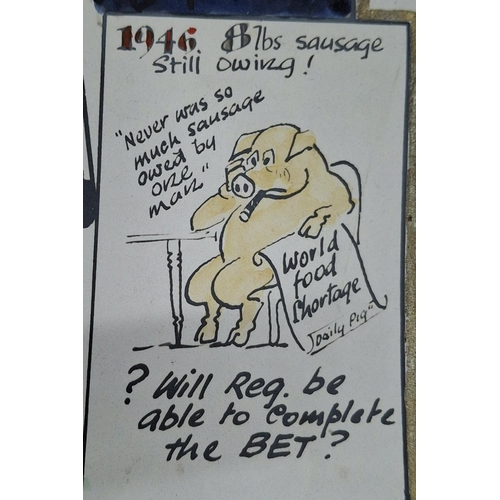 1946. 8lbs sausage
Still owing!
"Never was so
much sausage
owed by
one
man"
World
food
Shortage
"Daily Pig"
? Will Reg. be
able to complete
the BET?